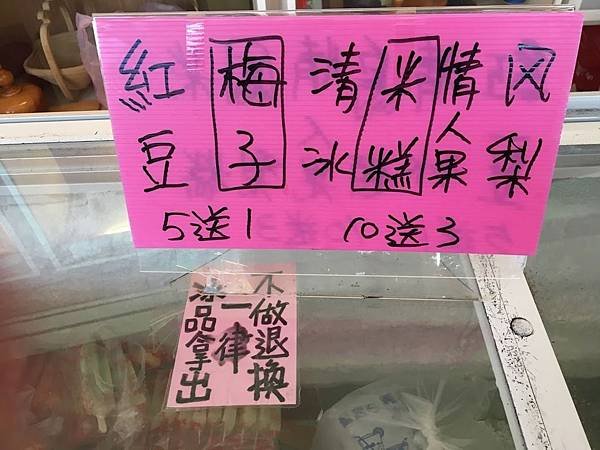 紅豆
梅子
清冰
米糕
情人果
风梨
5送1 10送3
冰品拿出
一律
不做退換